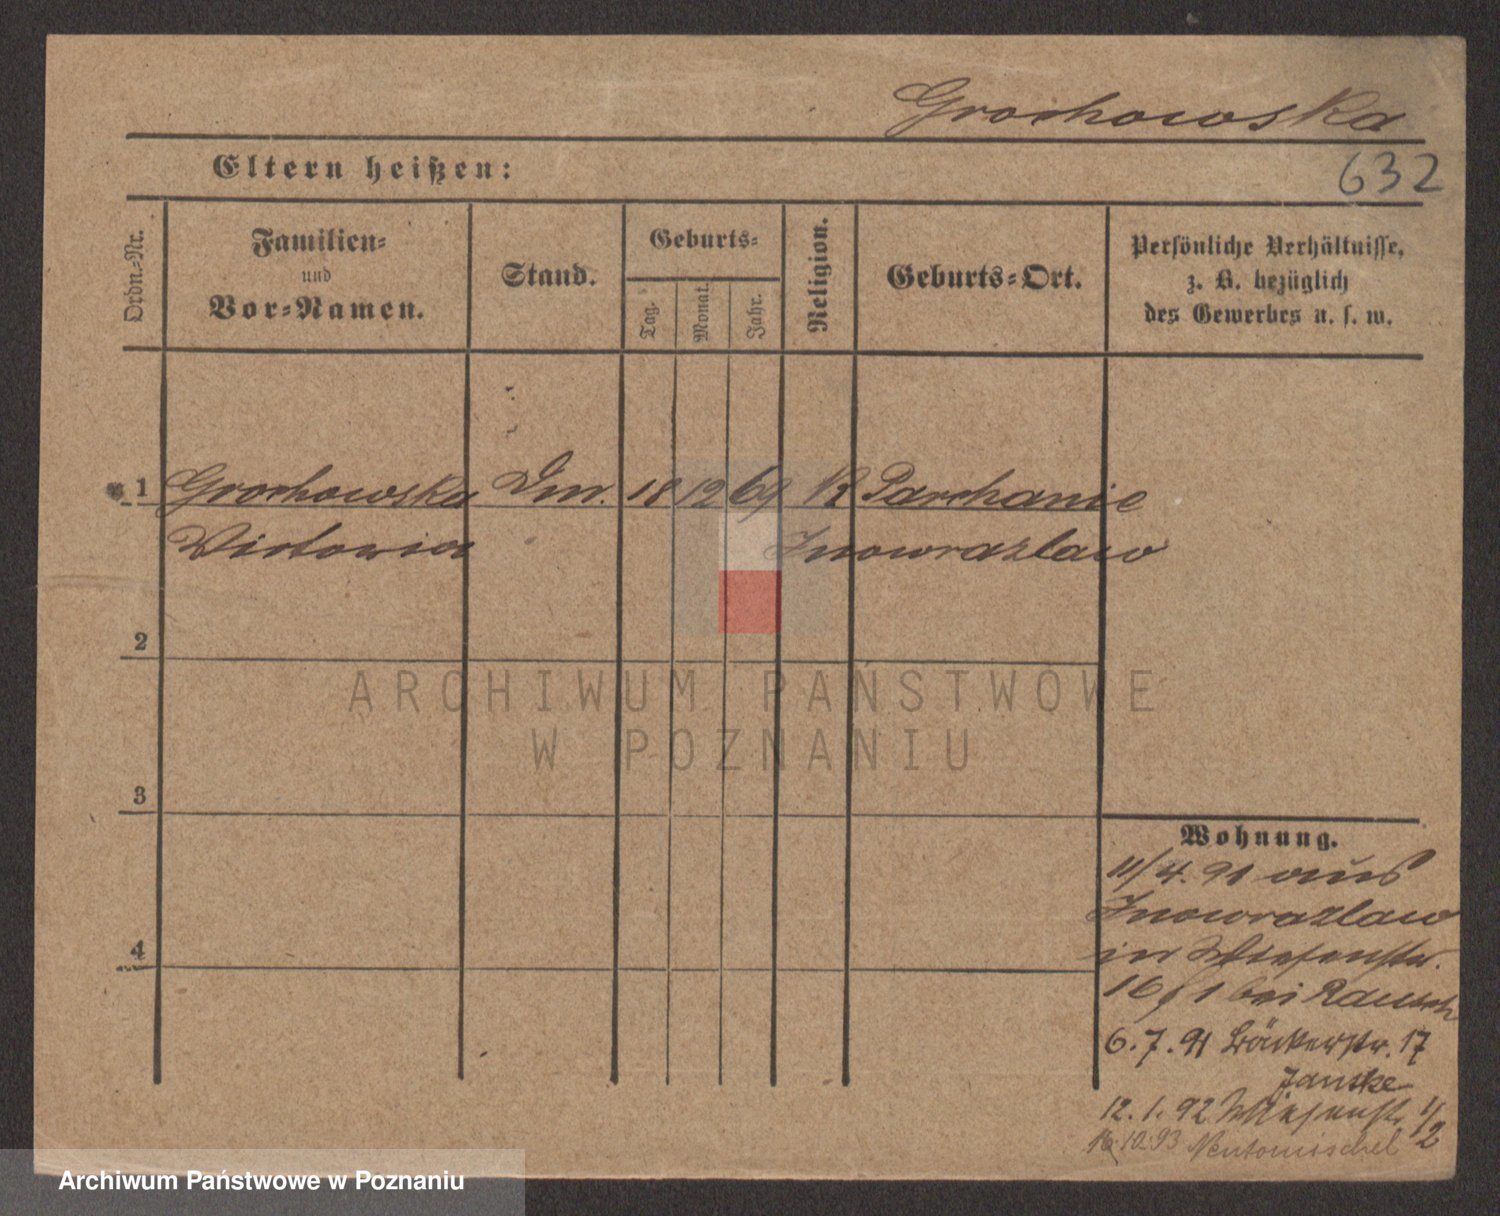 Grochowska
632
Eltern heißen:
Ordn.-Nr.
Familien-
und
Vor-Namen.
Stand.
Geburts-
Tag.
Monat.
Jahr.
Religion.
Geburts-Ort.
Persönliche Verhältnisse,
z. B. bezüglich
des Gewerbes u. s. w.
1 Grochowska 18 12 69 K Parchanie
Victoria Inowrazlaw
2
3
4
Wohnung.
11/4. 91 aus
Inowrazlaw
in Wiesenstr.
16 bei Rausch
6. 7. 91 Bäckerstr. 17
Janske
12. 1. 92 Wiesenstr. 1/2
10. 93 Neutomischel
ARCHIWUM PAŃSTWOWE
W POZNANIU
Archiwum Państwowe w Poznaniu